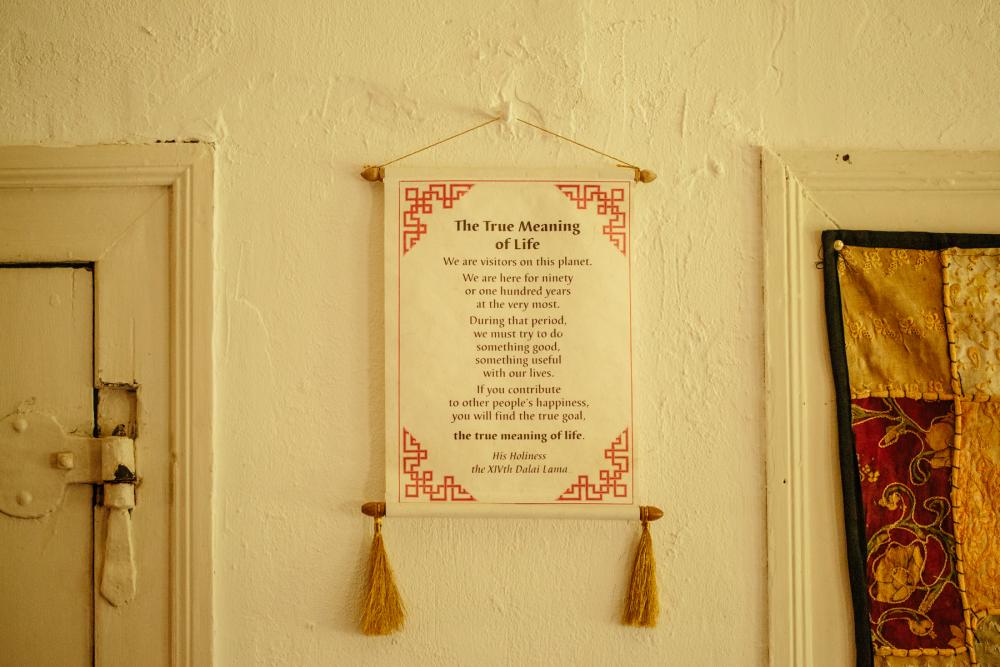 The True Meaning
of Life
We are visitors on this planet.
We are here for ninety
or one hundred years
at the very most.
During that period,
we must try to do
something good,
something useful
with our lives.
If you contribute
to other people's happiness,
you will find the true goal,
the true meaning of life.
His Holiness
the XIVth Dalai Lama